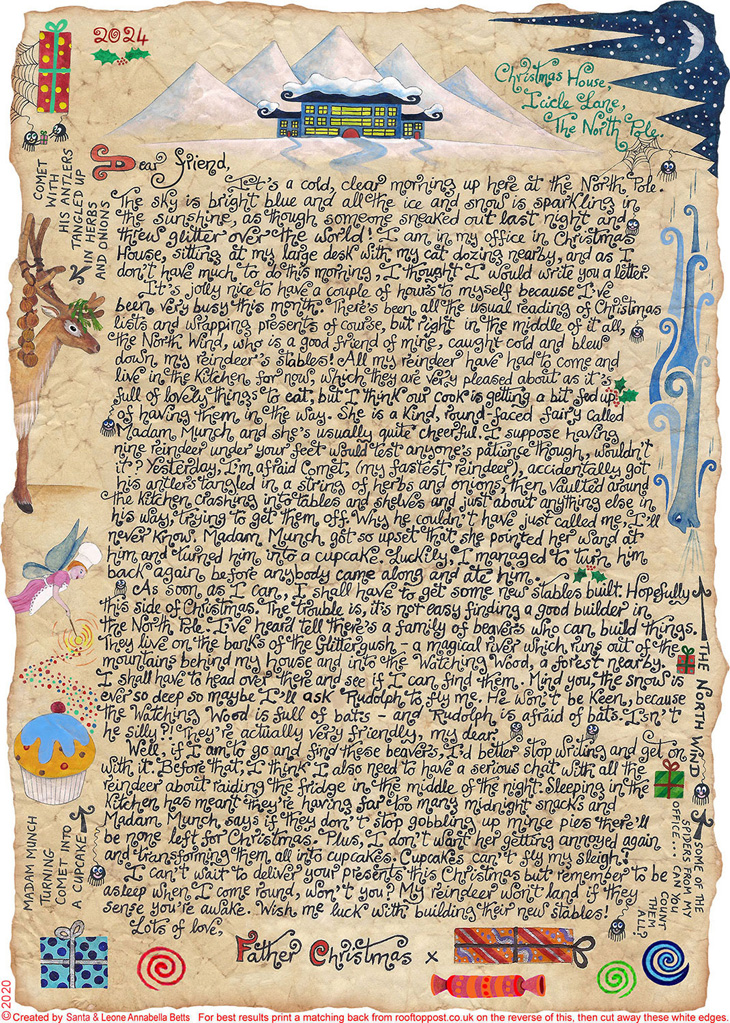 2024
Christmas House,
Icicle Lane,
The North Pole.
COMET
WITH
HIS ANTLERS
TANGLED UP
IN HERBS
AND ONIONS
Dear friend,
It's a cold, clear morning up here at the North Pole.
The sky is bright blue and all the ice and snow is sparkling in
the sunshine, as though someone sneaked out last night and
threw glitter over the world! I am in my office in Christmas
House, sitting at my large desk with my cat dozing nearby, and as I
don't have much to do this morning, I thought I would write you a letter.
It's jolly nice to have a couple of hours to myself because I've
been very busy this month. There's been all the usual reading of Christmas
lists and wrapping presents of course, but right in the middle of it all,
the North Wind, who is a good friend of mine, caught cold and blew
down my reindeer's stables! All my reindeer have had to come and
live in the kitchen for now, which they are very pleased about as it's
full of lovely things to eat, but I think our cook is getting a bit fed up
of having them in the way. She is a kind, round-faced fairy called
Madam Munch and she's usually quite cheerful. I suppose having
nine reindeer under your feet would test anyone's patience though, wouldn't
it? Yesterday, I'm afraid Comet, (my fastest reindeer), accidentally got
his antlers tangled in a string of herbs and onions, then vaulted around
the kitchen crashing into tables and shelves and just about anything else in
his way, trying to get them off. Why he couldn't have just called me, I'll
never know. Madam Munch got so upset that she pointed her wand at
him and turned him into a cupcake. Luckily, I managed to turn him
back again before anybody came along and ate him.
As soon as I can, I shall have to get some new stables built. Hopefully
this side of Christmas. The trouble is, it's not easy finding a good builder in
the North Pole. I've heard tell there's a family of beavers who can build things.
They live on the banks of the Glittergush - a magical river which runs out of the
mountains behind my house and into the Watching Wood, a forest nearby.
I shall have to head over there and see if I can find them. Mind you, the snow is
ever so deep so maybe I'll ask Rudolph to fly me. He won't be keen, because
the Watching Wood is full of bats - and Rudolph is afraid of bats. Isn't
he silly?! They're actually very friendly, my dear.
Well, if I am to go and find these beavers, I'd better stop writing and get on
with it. Before that, I think I also need to have a serious chat with all the
reindeer about raiding the fridge in the middle of the night. Sleeping in the
kitchen has meant they're having far to many midnight snacks and
Madam Munch says if they don't stop gobbling up mince pies there'll
be none left for Christmas. Plus, I don't want her getting annoyed again
and transforming them all into cupcakes. Cupcakes can't fly my sleigh!
I can't wait to deliver your presents this Christmas but remember to be
asleep when I come round, won't you? My reindeer won't land if they
sense you're awake. Wish me luck with building their new stables!
Lots of love,
Father Christmas x
THE NORTH WIND
MADAM MUNCH
TURNING
COMET INTO
A CUPCAKE
SOME OF THE
SPIDERS FROM MY
OFFICE... CAN YOU
COUNT
THEM
ALL?
2020
© Created by Santa & Leone Annabella Betts For best results print a matching back from rooftoppost.co.uk on the reverse of this, then cut away these white edges.